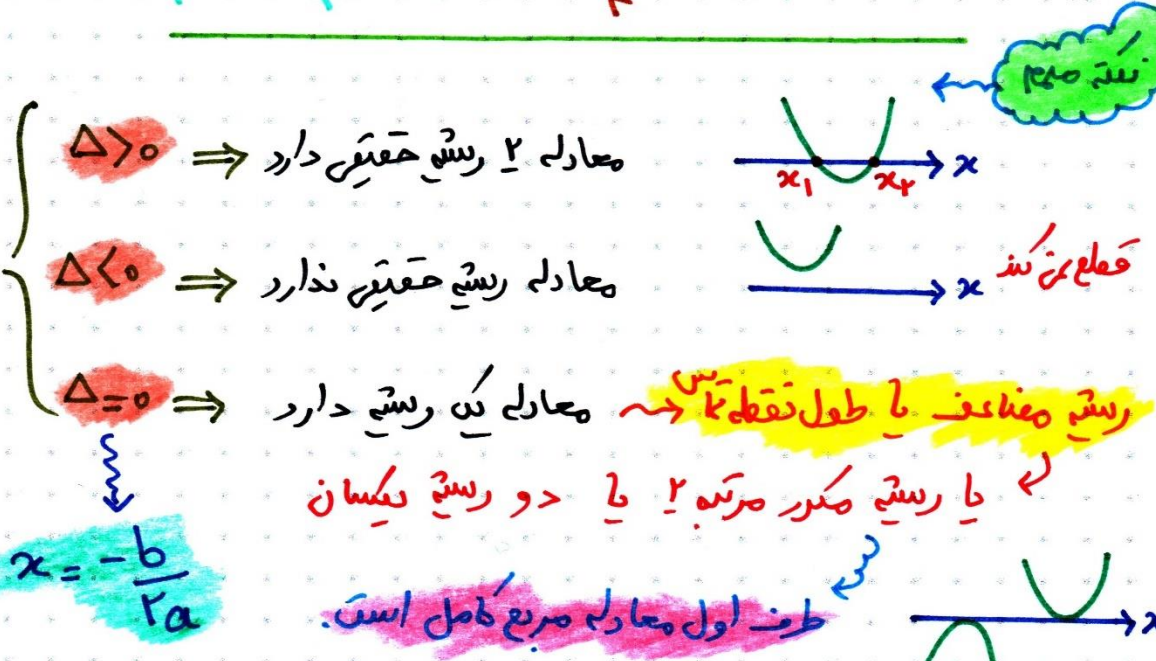 نکته مهم
Δ>0 ⇒ معادله ۲ ریشه حقیقی دارد
x₁ x₂ x
Δ<0 ⇒ معادله ریشه حقیقی ندارد
x قطع نمی کند
Δ=0 ⇒ معادله یک ریشه دارد ریشه مضاعف یا طول نقطه تماس
یا ریشه مکرر مرتبه ۲ یا دو ریشه یکسان
x = -b/۲a
طرف اول معادله مربع کامل است.
x